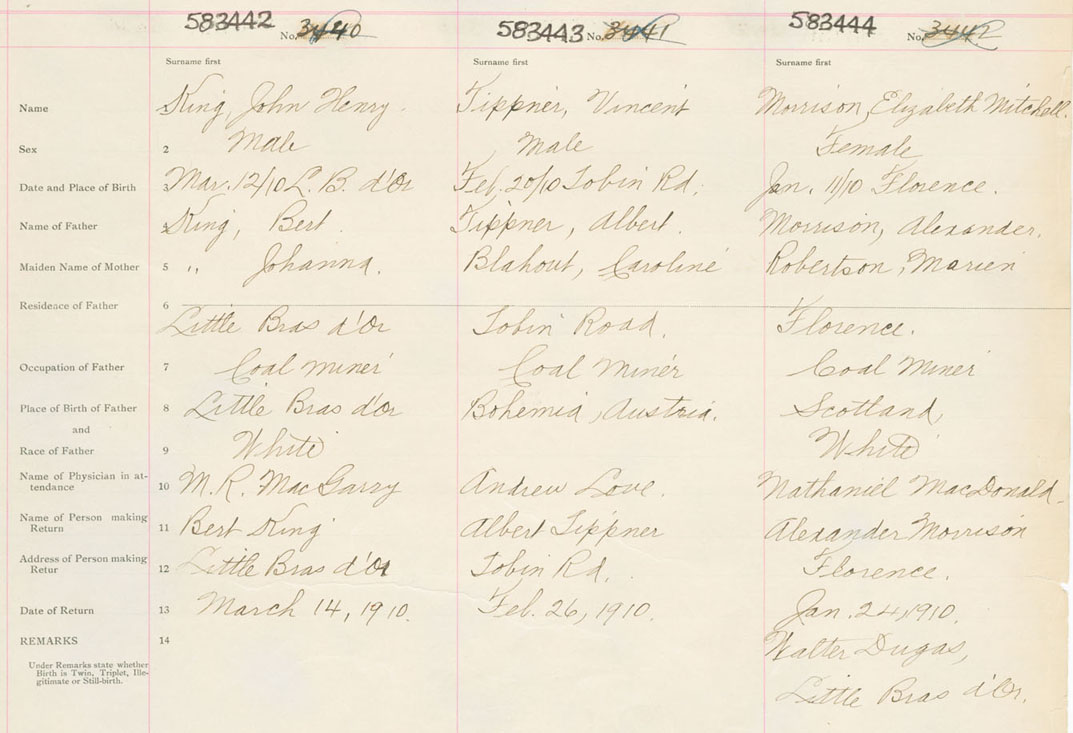 583442 No. 3440 583443 No. 3441 583444 No. 3442
Surname first Surname first Surname first
Name 1 King, John Henry. Tippner, Vincent Morrison, Elizabeth Mitchell.
Sex 2 Male Male Female
Date and Place of Birth 3 Mar. 12/10 L. B. d'Or Feb. 20/10 Tobin Rd. Jan. 11/10 Florence.
Name of Father 4 King, Bert. Tippner, Albert. Morrison, Alexander.
Maiden Name of Mother 5 " Johanna. Blahout, Caroline Robertson, Marien
Residence of Father 6
Little Bras d'Or Tobin Road. Florence.
Occupation of Father 7 Coal miner Coal Miner Coal Miner
Place of Birth of Father 8 Little Bras d'Or Bohemia, Austria. Scotland,
and
Race of Father 9 White White
Name of Physician in at-
tendance 10 M. R. MacGarry Andrew Love. Nathaniel MacDonald.
Name of Person making
Return 11 Bert King Albert Tippner Alexander Morrison
Address of Person making
Retur 12 Little Bras d'Or Tobin Rd. Florence.
Date of Return 13 March 14, 1910. Feb. 26, 1910. Jan. 24, 1910.
REMARKS 14 Walter Dugas,
Under Remarks state whether
Birth is Twin, Triplet, Ille-
gitimate or Still-birth.
Little Bras d'Or.